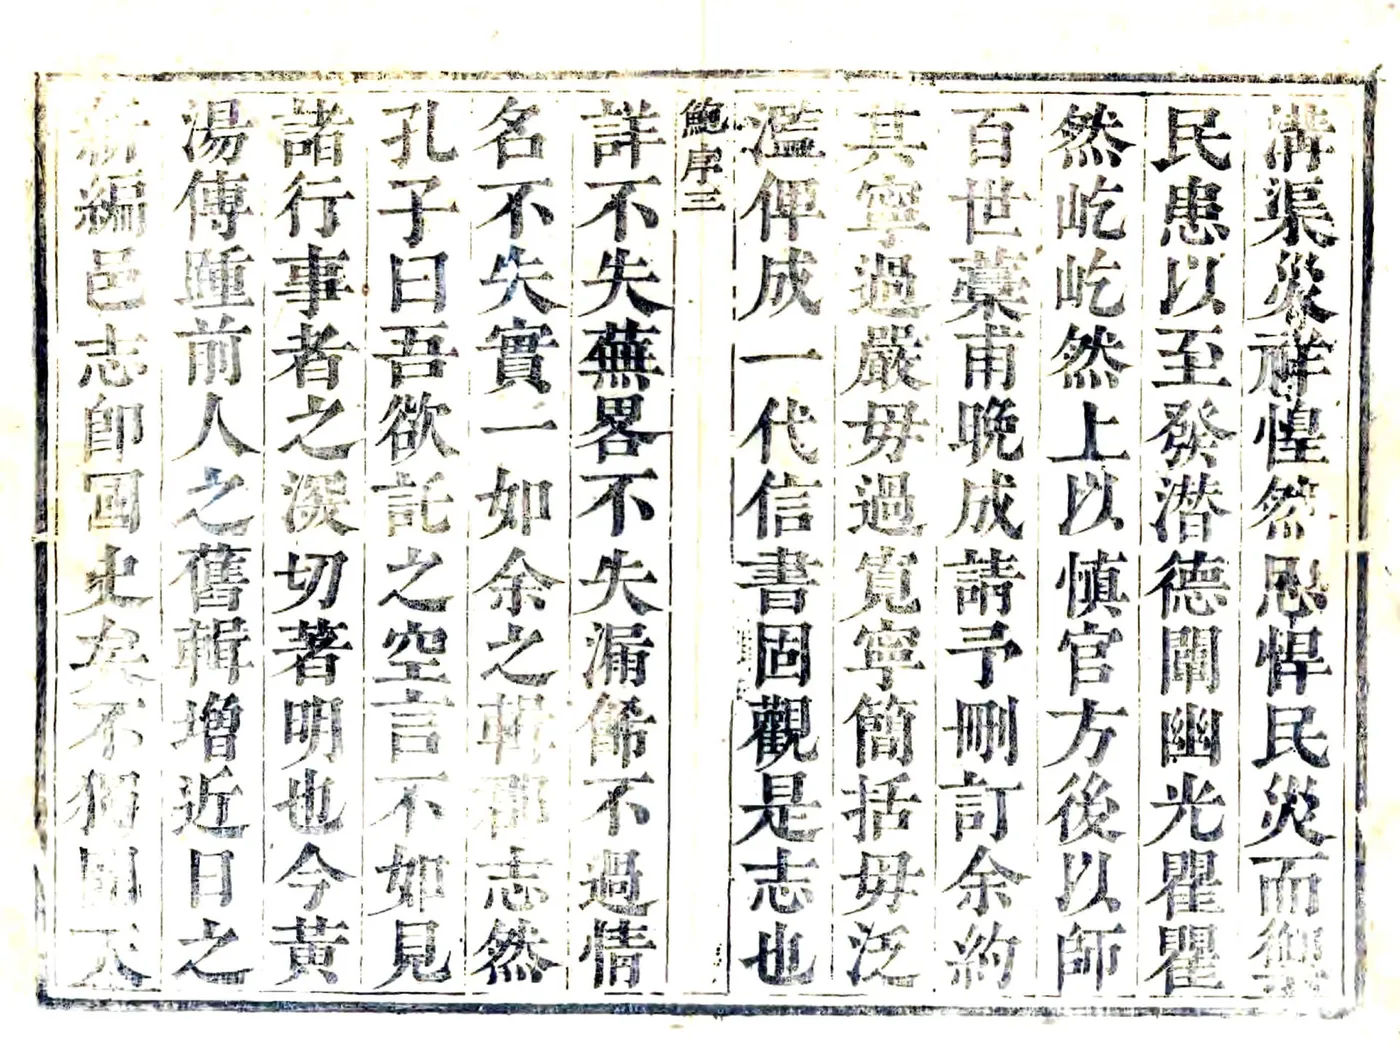 溝渠災祥惶然思悍民災而禦
民患以至發潜德闡幽光瞿瞿
然屹屹然上以慎官方後以師
百世藁甫晩成請予刪訂余約
其寧過嚴毋過寛寧簡括毋泛
濫俾成一代信書固觀是志也
鮑序三
詳不失蕪畧不失漏俻不過情
名不失實一如余之輯郡志然
孔子曰吾欲託之空言不如見
諸行事者之深切著明也今黄
湯傳踵前人之舊輯增近日之
新編邑志卽国史矣不獨